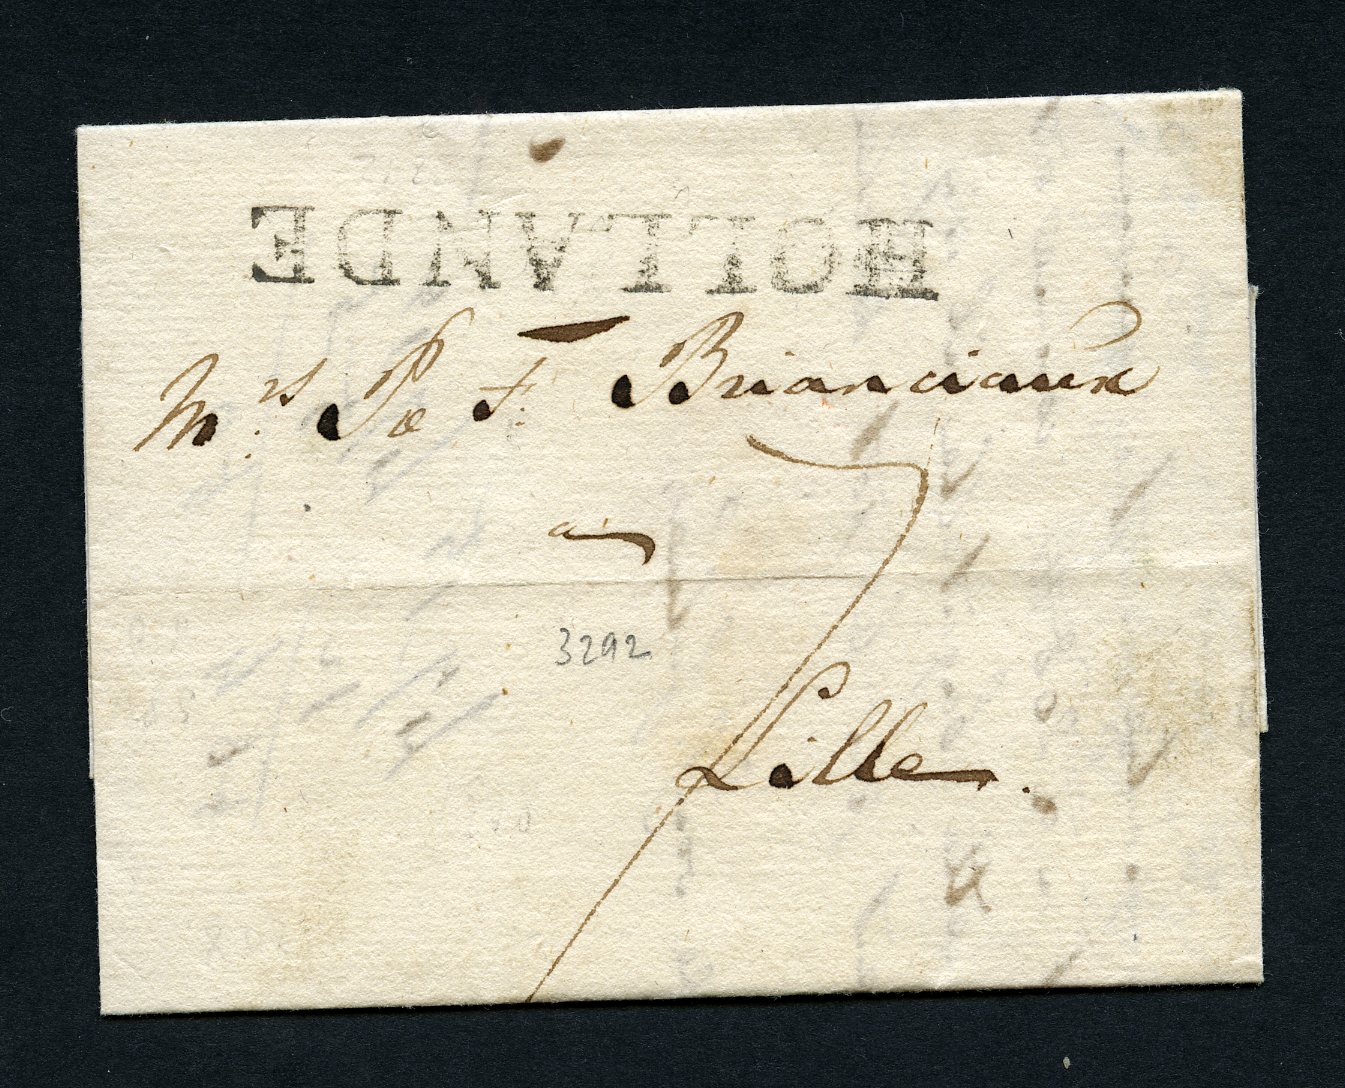 HOLLANDE
Mrs. P & F. Brianciaux
a
3292
Lille.
7